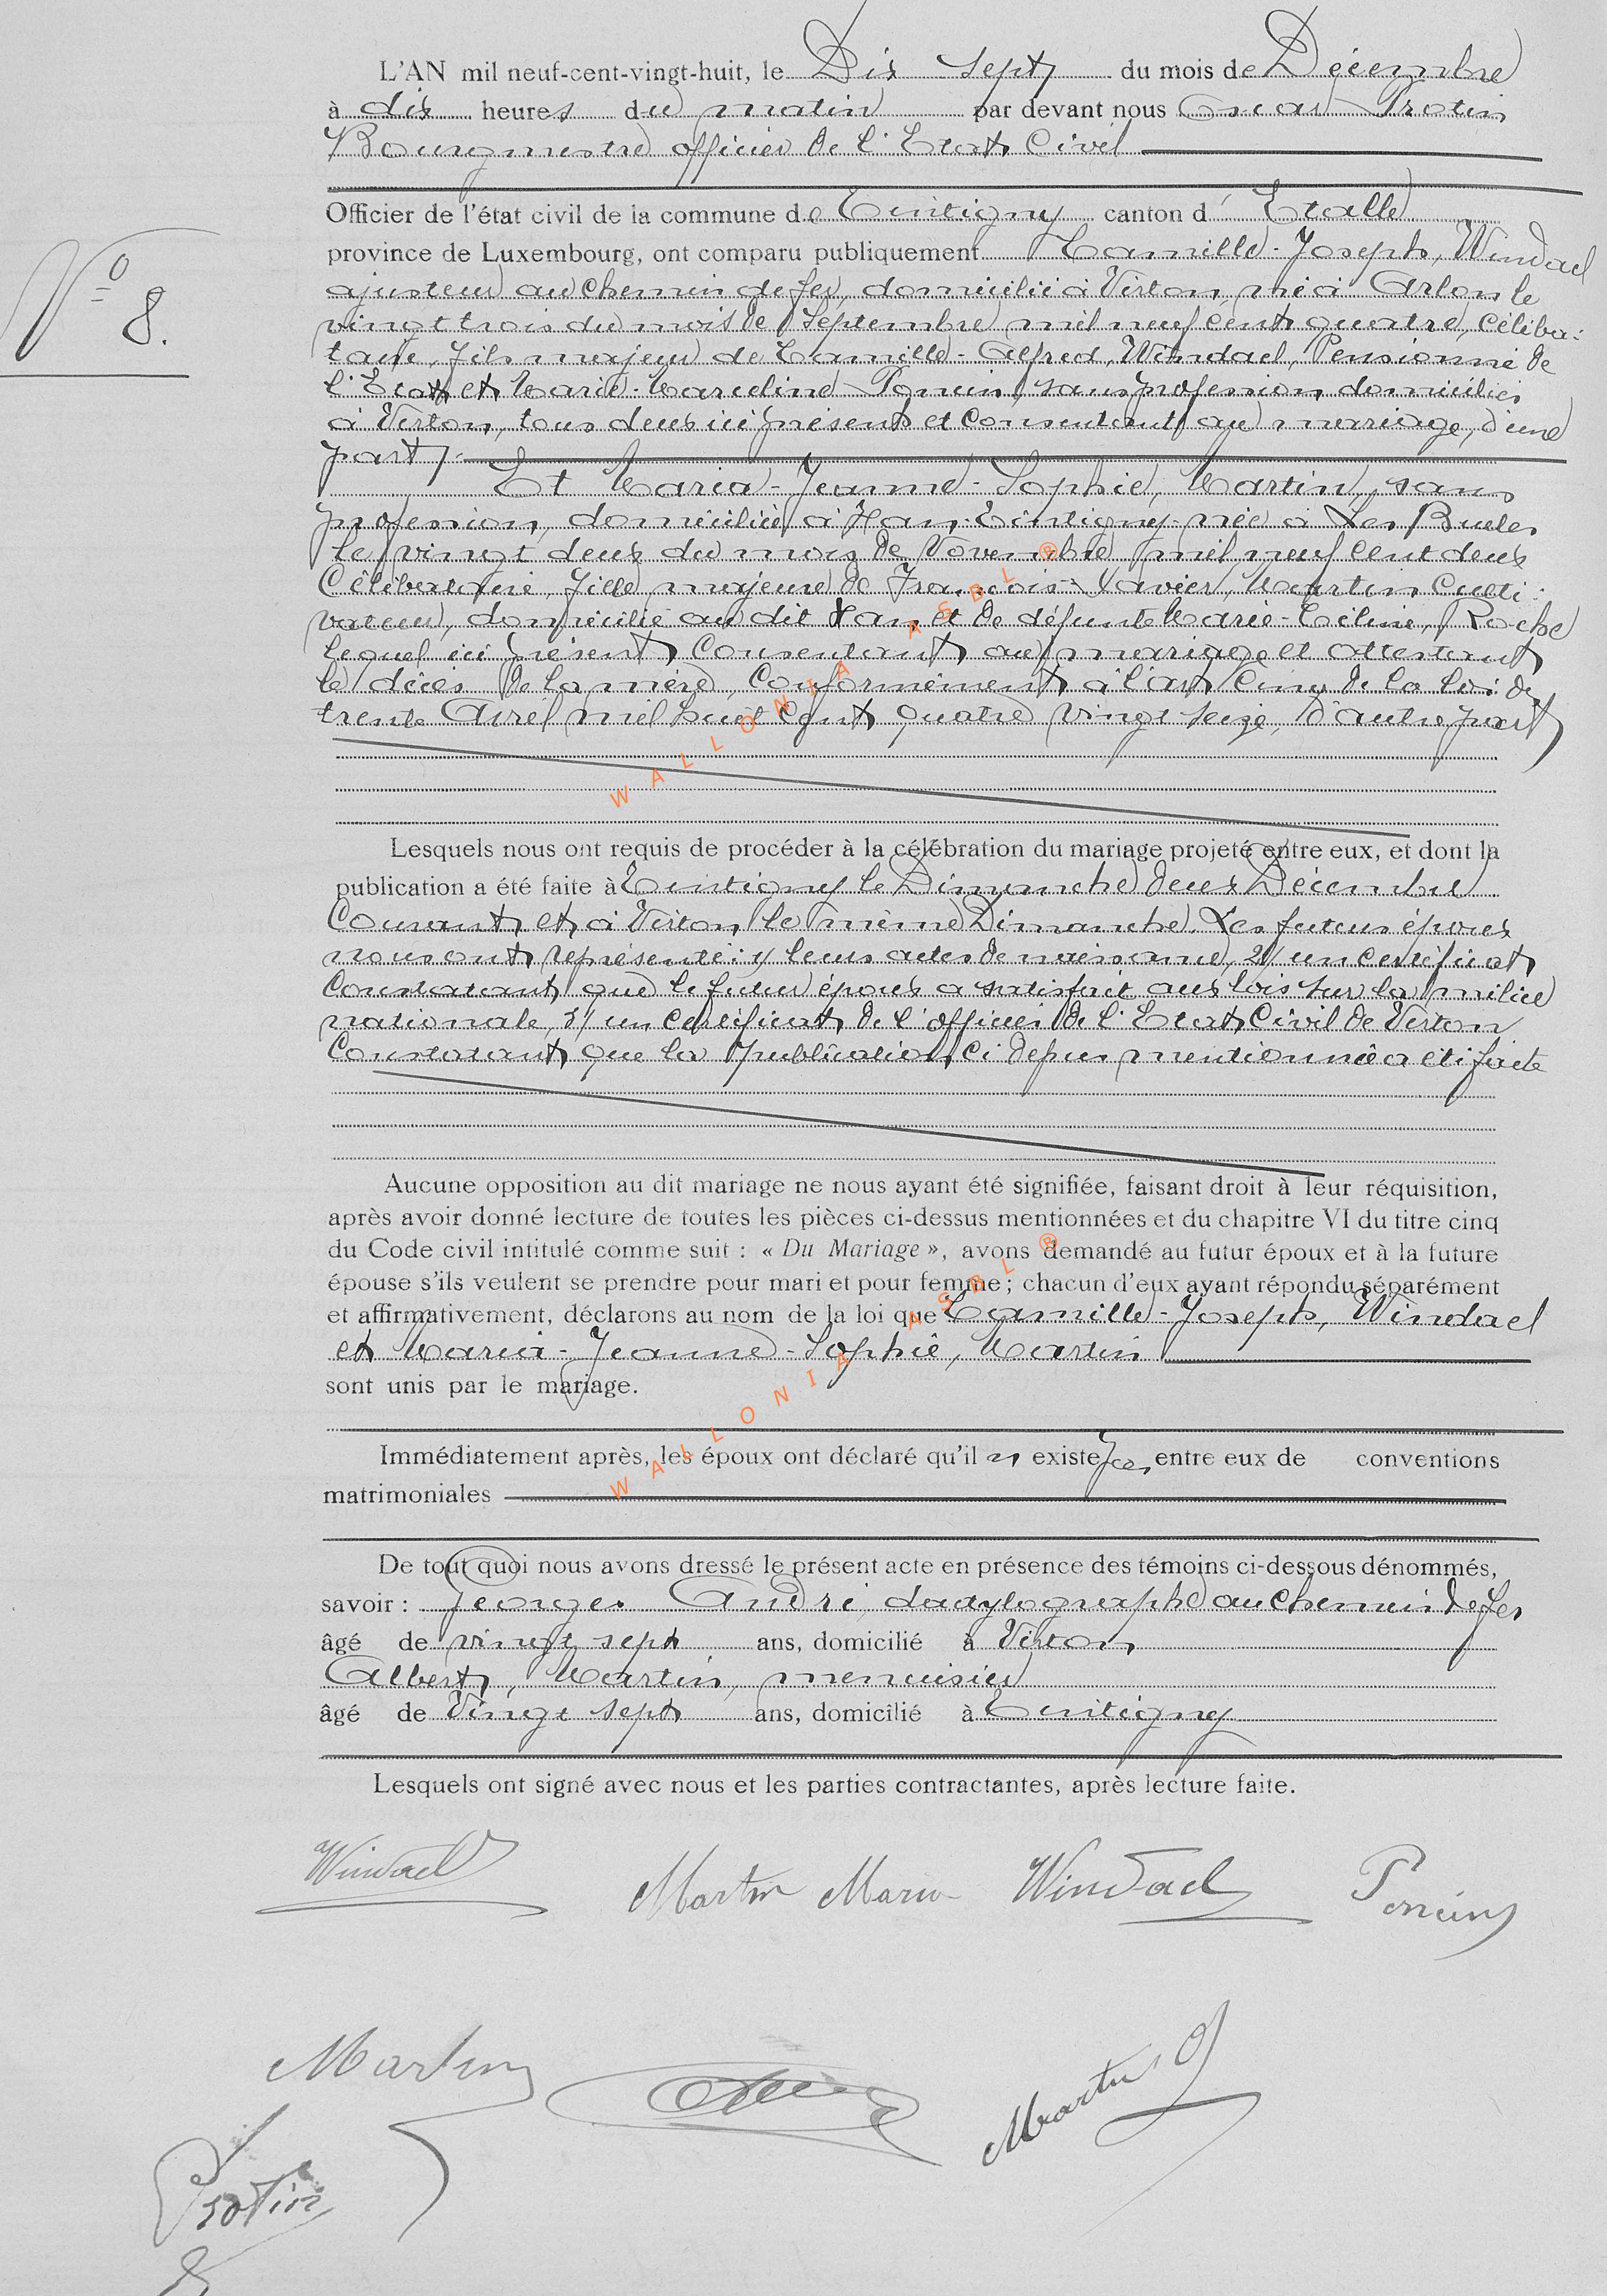 L'AN mil neuf-cent-vingt-huit, le Dix sept du mois de Décembre
à dix heures du matin par devant nous Oscar Protin
Bourgmestre officier de l'Etat Civil
Officier de l'état civil de la commune de Tintigny canton d' Etalle
province de Luxembourg, ont comparu publiquement Camille-Joseph, Windael
N° 8.
ajusteur au chemin de fer, domicilié à Virton, né à Arlon le
vingt trois du mois de Septembre mil neuf cent quatre, céliba-
taire, fils majeur de Camille-Alfred, Windael, Pensionné de
l'Etat et Marie-Marceline Poncin, sans profession, domiciliés
à Virton, tous deux ici présents et consentant au mariage, d'une
part.
Et Maria-Jeanne-Sophie, Martin, sans
profession, domiciliée à Han-Tintigny née à Les Bulles
le vingt deux du mois de Novembre mil neuf cent deux
Célibataire, fille majeure de François-Xavier, Martin Culti-
vateur, domicilié au dit Han et de défunte Marie-Céline, Roche
lequel ici présent, consentant au mariage et attestant
le décès de la mère, conformément à l'art cinq de la loi du
trente Avril mil huit cent quatre vingt seize, d'autre part
Lesquels nous ont requis de procéder à la célébration du mariage projeté entre eux, et dont la
publication a été faite à Tintigny le Dimanche deux Décembre
Courant et à Virton le même Dimanche. Les futurs époux
nous ont représenté: 1/ leurs actes de naissance, 2/ un certificat
Constatant que le futur époux a satisfait aux lois sur la milice
nationale, 3/ un certificat de l'officier de l'Etat Civil de Virton
Constatant que la publication ci depus mentionnée a été faite
Aucune opposition au dit mariage ne nous ayant été signifiée, faisant droit à leur réquisition,
après avoir donné lecture de toutes les pièces ci-dessus mentionnées et du chapitre VI du titre cinq
du Code civil intitulé comme suit : « Du Mariage », avons demandé au futur époux et à la future
épouse s'ils veulent se prendre pour mari et pour femme ; chacun d'eux ayant répondu séparément
et affirmativement, déclarons au nom de la loi que Camille-Joseph, Windael
et Maria-Jeanne-Sophie, Martin
sont unis par le mariage.
Immédiatement après, les époux ont déclaré qu'il n existe pas entre eux de conventions
matrimoniales
De tout quoi nous avons dressé le présent acte en présence des témoins ci-dessous dénommés,
savoir : Georges André, dactylographe au chemin de fer
âgé de vingt sept ans, domicilié à Virton
Albert, Martin, menuisier
âgé de Vingt sept ans, domicilié à Tintigny
Lesquels ont signé avec nous et les parties contractantes, après lecture faite.
Windael Martin Maria Windael Poncin
Martin Martin
Protin
WALLONIA ASBL ®
WALLONIA ASBL ®